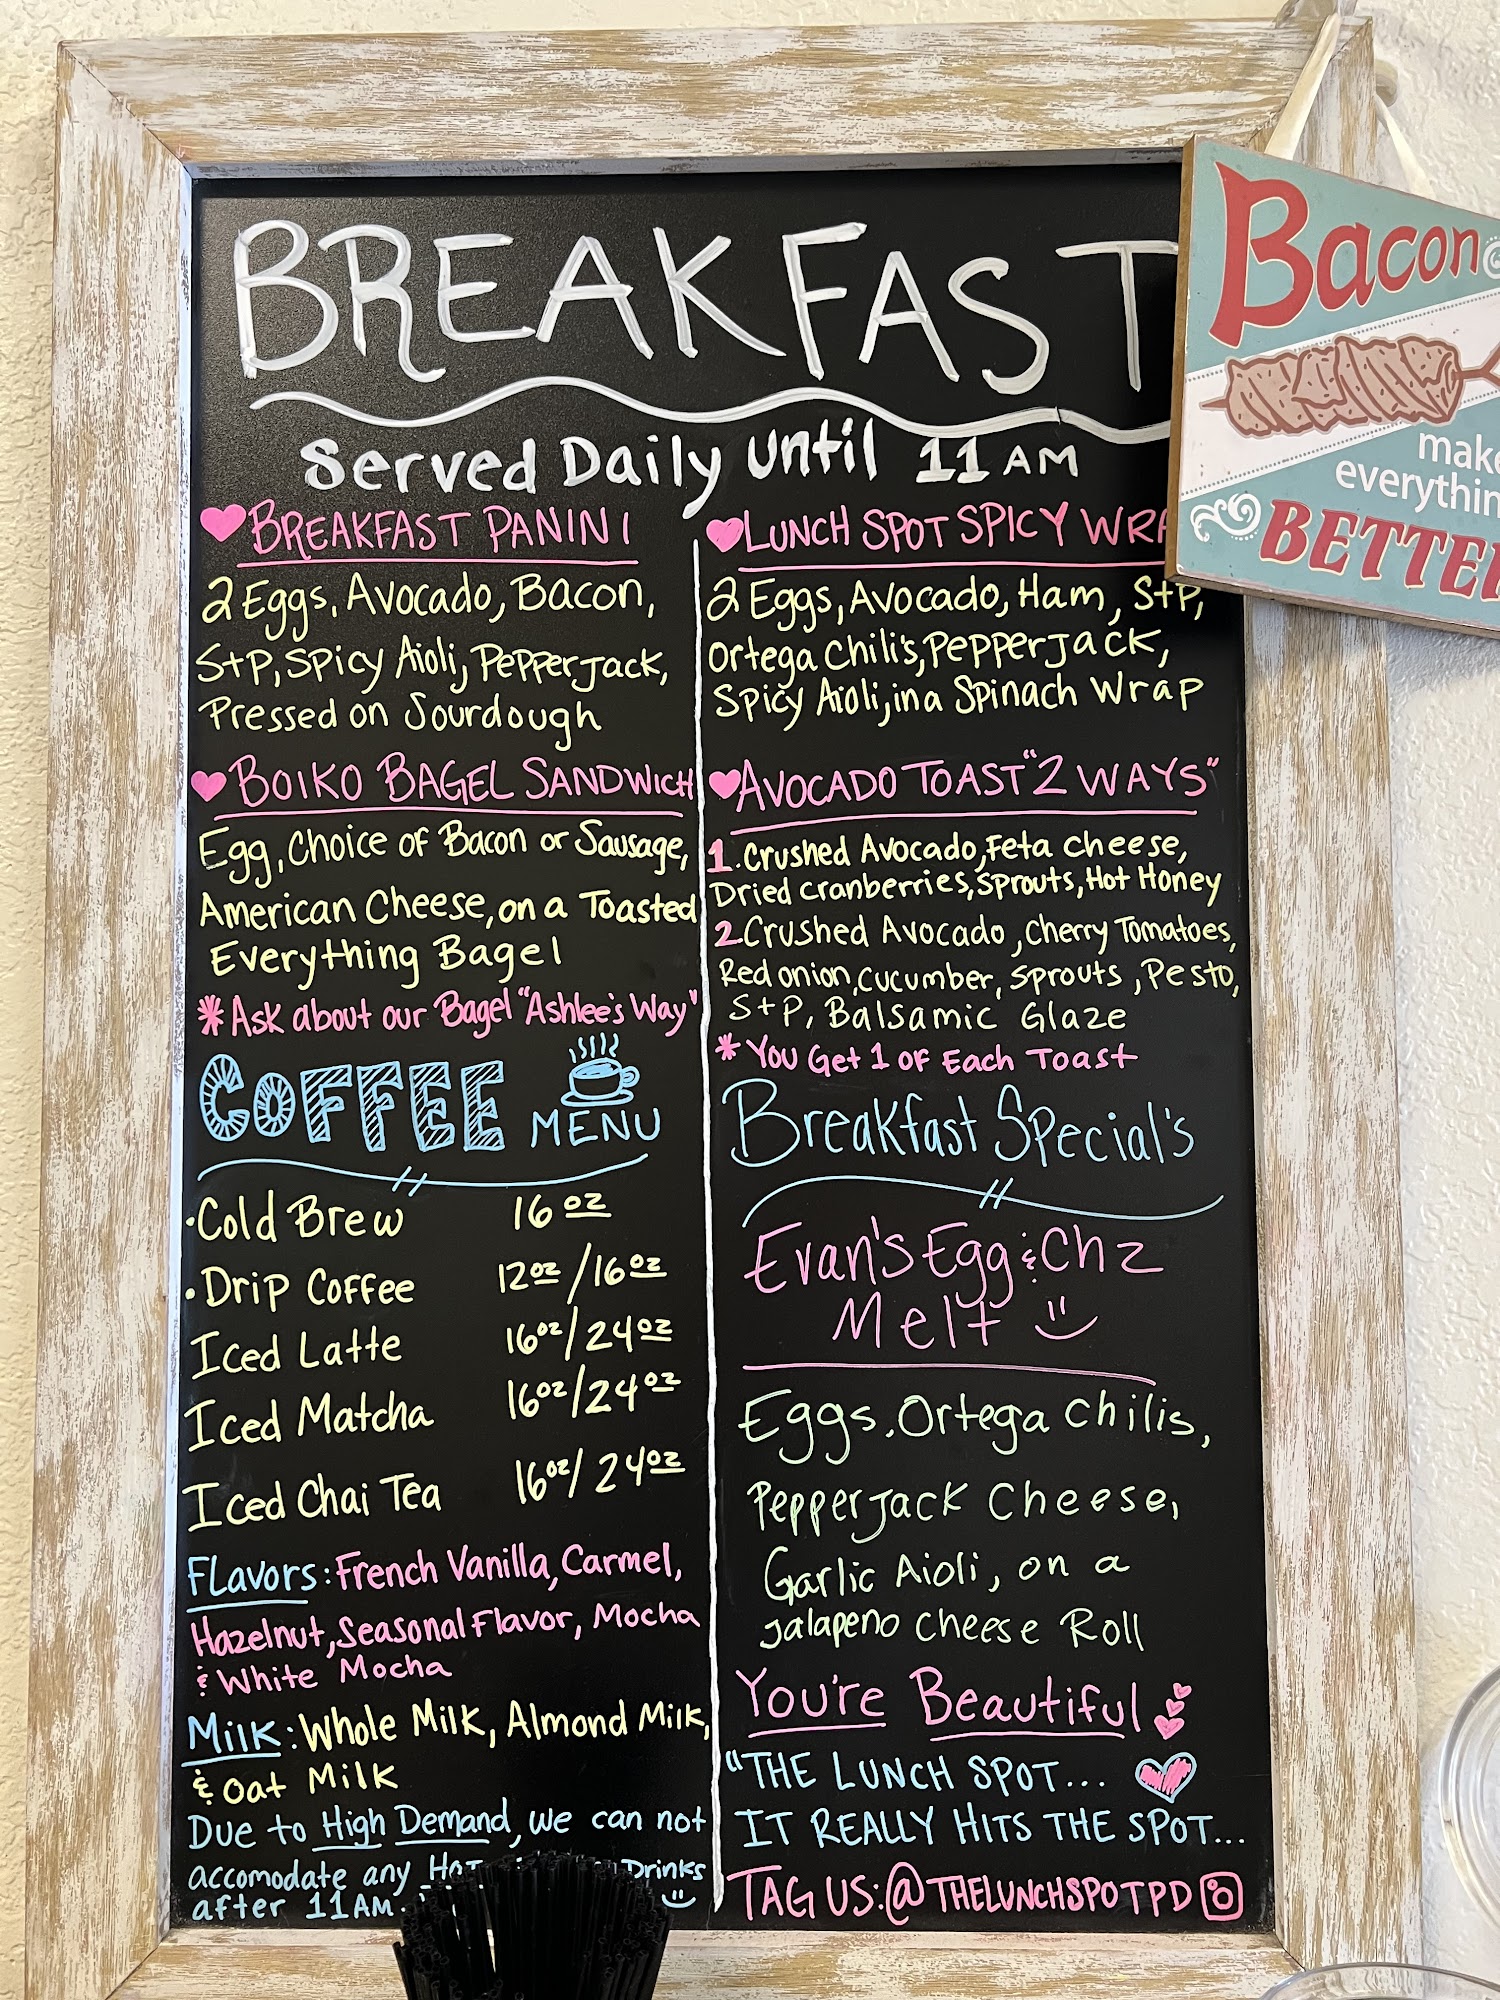 BREAKFAST
Served Daily Until 11 AM
BREAKFAST PANINI
2 Eggs, Avocado, Bacon,
S+P, Spicy Aioli, PepperJack,
Pressed on Sourdough
BOIKO BAGEL SANDWICH
Egg, Choice of Bacon or Sausage,
American Cheese, on a Toasted
Everything Bagel
*Ask about our Bagel "Ashlee's Way"
COFFEE
MENU
·Cold Brew 16 oz
·Drip Coffee 12oz/16oz
Iced Latte 16oz/24oz
Iced Matcha 16oz/24oz
Iced Chai Tea 16oz/24oz
Flavors: French Vanilla, Carmel,
Hazelnut, Seasonal Flavor, Mocha
& White Mocha
Milk: Whole Milk, Almond Milk,
& Oat Milk
Due to High Demand, we can not
accomodate any Drinks
after 11AM.
LUNCH SPOT SPICY WRA
2 Eggs, Avocado, Ham, S+P,
Ortega Chili's, PepperJack,
Spicy Aioli, in a Spinach Wrap
AVOCADO TOAST "2 WAYS"
1. Crushed Avocado, Feta Cheese,
Dried Cranberries, Sprouts, Hot Honey
2. Crushed Avocado, Cherry Tomatoes,
Red onion, cucumber, Sprouts, Pesto,
S+P, Balsamic Glaze
*You Get 1 of Each Toast
Breakfast Special's
Evan's Egg & Chz
Melt
Eggs, Ortega Chilis,
PepperJack Cheese,
Garlic Aioli, on a
Jalapeno Cheese Roll
You're Beautiful
"THE LUNCH SPOT...
IT REALLY HITS THE SPOT...
TAG US: @THELUNCHSPOTPD
Bacon
make
everythin
BETTE